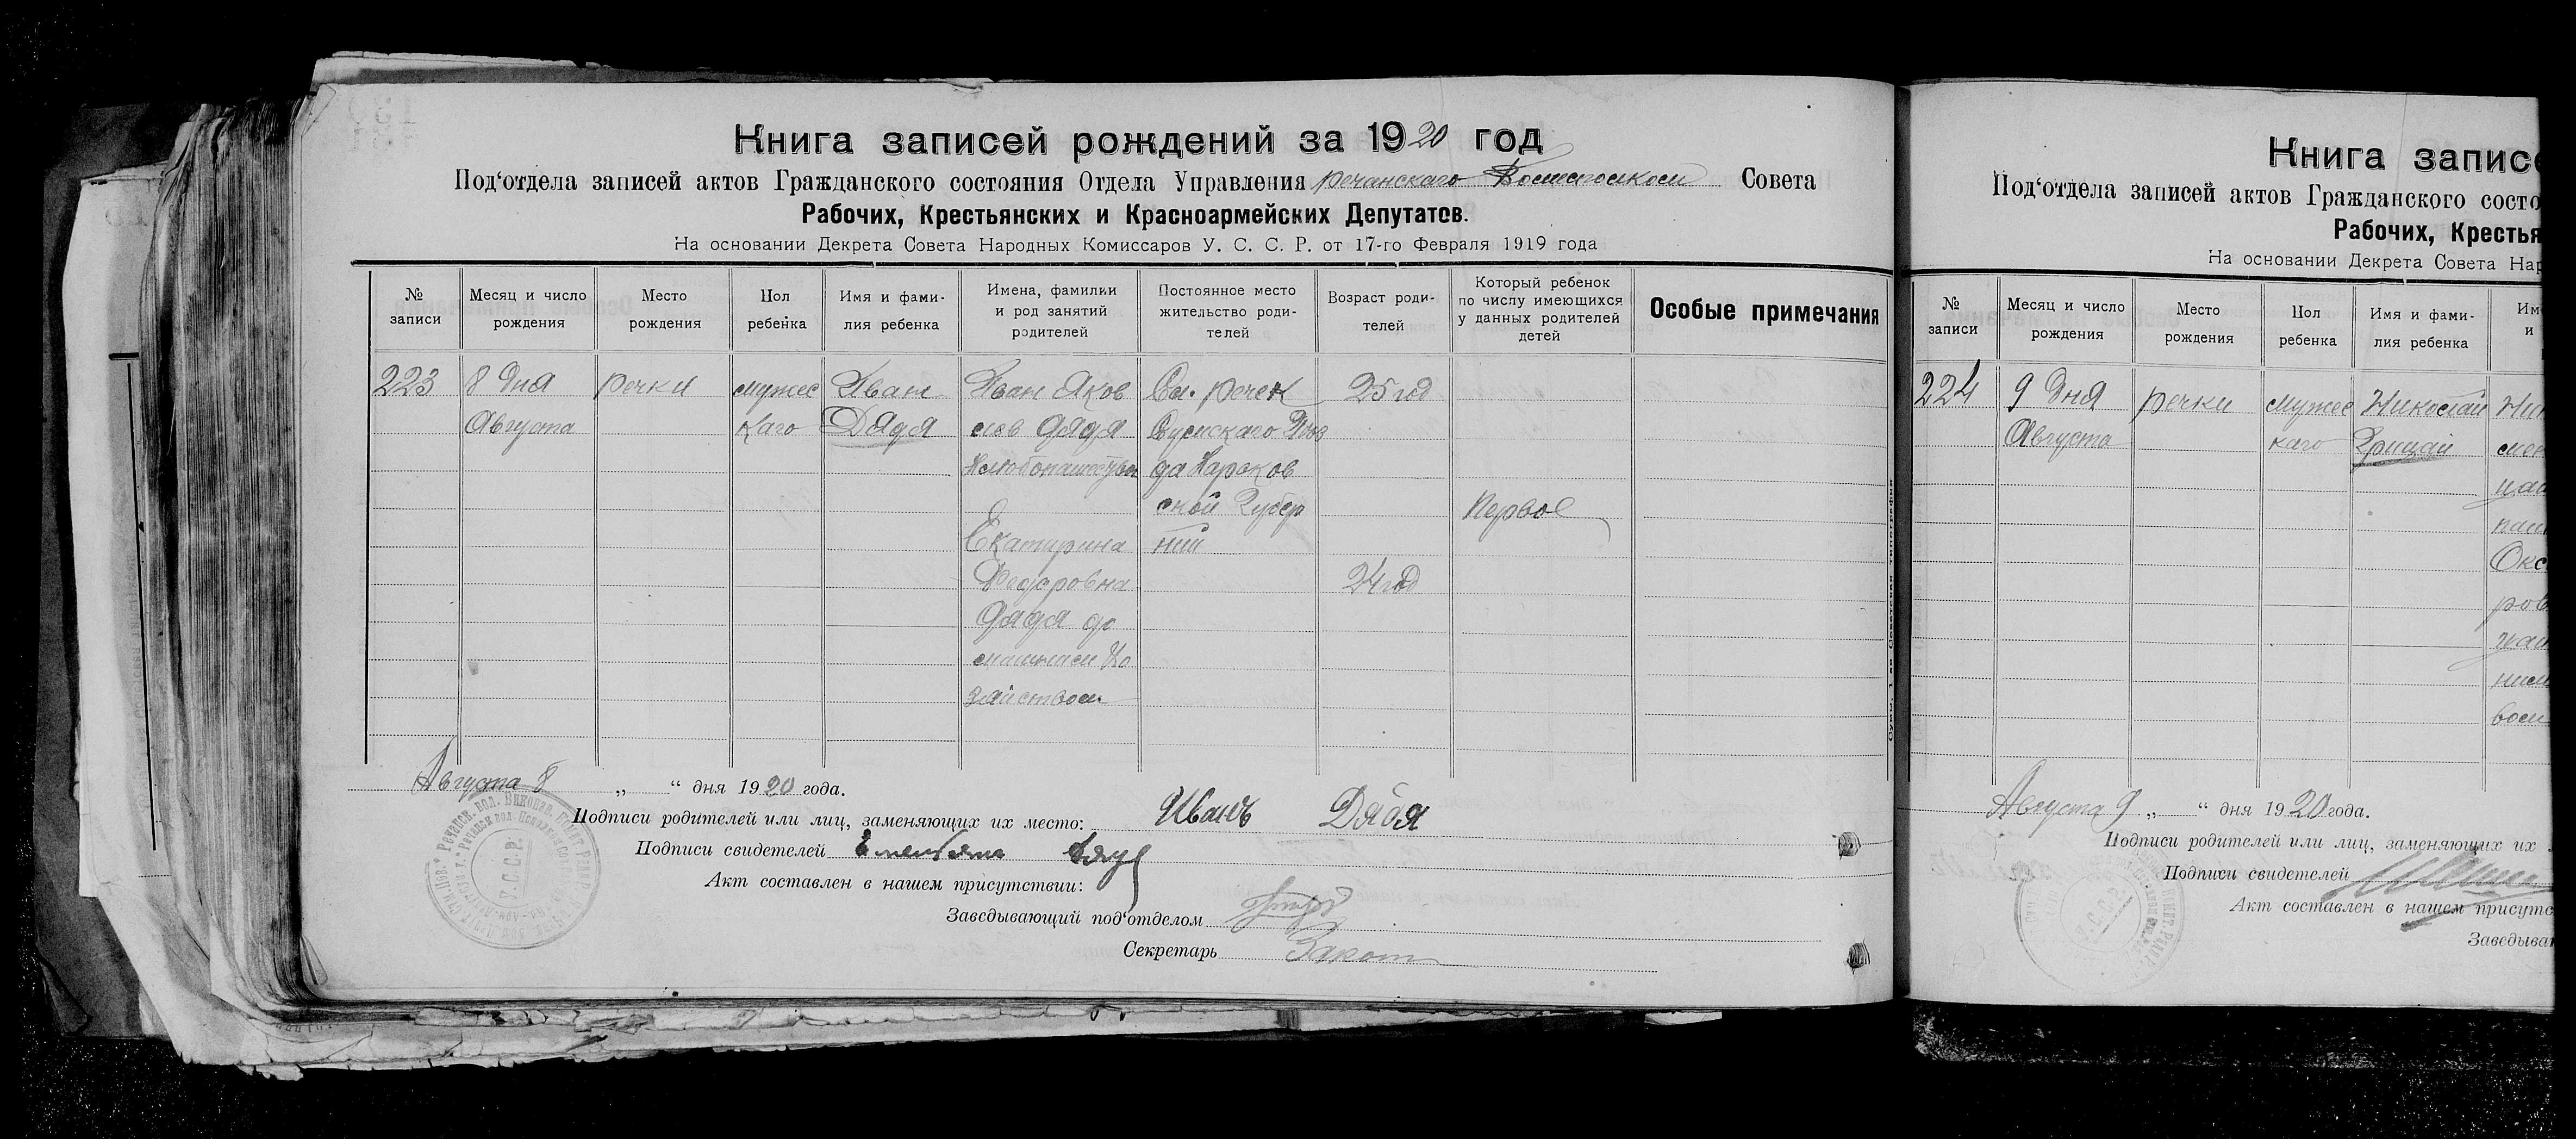 Книга записей рождений за 1920 год
Под‘отдела записей актов Гражданского состояния Отдела Управления речанскаго Совета
Рабочих, Крестьянских и Красноармейских Депутатов.
На основании Декрета Совета Народных Комиссаров У. С. С. Р. от 17-го Февраля 1919 года
№ записи
Месяц и число рождения
Место рождения
Пол ребенка
Имя и фамилия ребенка
Имена, фамильи и род занятий родителей
Постоянное место жительство родителей
Возраст родителей
Который ребенок по числу имеющихся у данных родителей детей
Особые примечания
223
8 Дня
Августа
речки
мужес
каго
Иван
Дядя
Иван Яков
лев Дядя
Хлебопашество
Екатирина
Федоровна
Дядя до
машнем Хо
зяйством
Сл. речек
Сумскаго Уез
да Харьков
ской Губер
нии
25 год
24 год
Первое
Августа 8 „ “ дня 1920 года.
Подписи родителей или лиц, заменяющих их место: Иванъ Дядя
Подписи свидетелей
Акт составлен в нашем присутствии:
Заведывающий под‘отделом
Секретарь
Книга записе
Под‘отдела записей актов Гражданского состо
Рабочих, Крестья
На основании Декрета Совета Нар
№ записи
Месяц и число рождения
Место рождения
Пол ребенка
Имя и фамилия ребенка
Им
и
224
9 Дня
Августа
речки
мужес
каго
Николай
Грицай
Августа 9 „ “ дня 1920 года.
Подписи родителей или лиц, заменяющих их
Подписи свидетелей
Акт составлен в нашем присутс
Заведыва